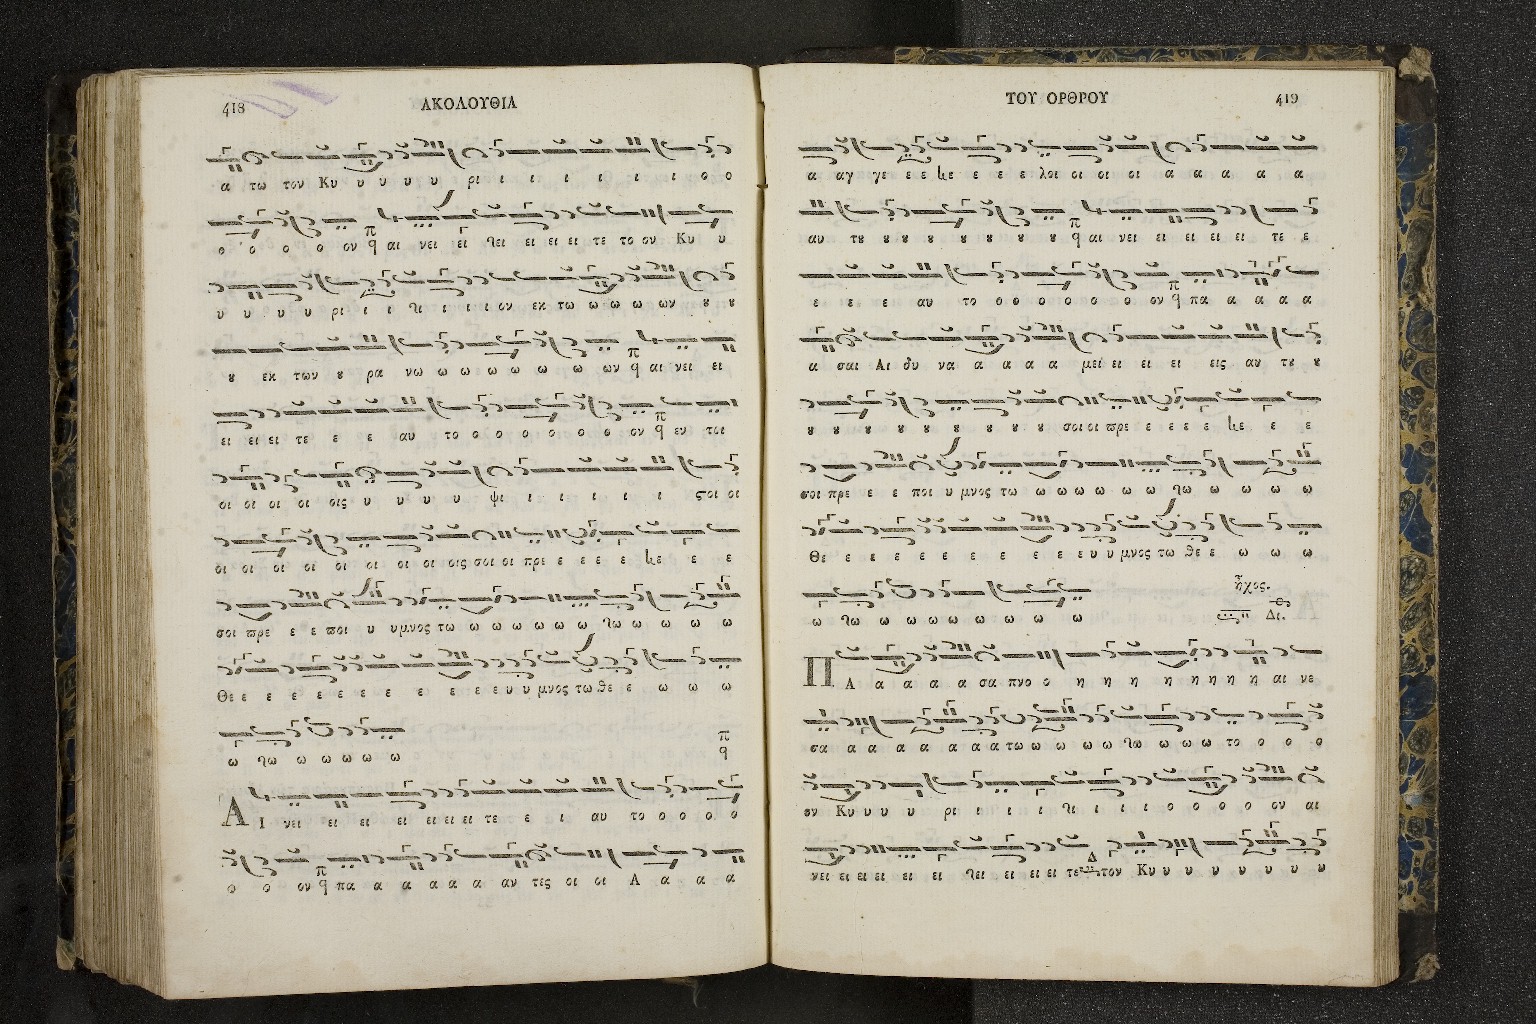 418 ΑΚΟΛΟΥΘΙΑ
α τω τον Κυ υ υ υ υ ρι ι ι ι ι ι ι ι ο ο
ο ο ο ο ον αι νει ει ει ει ει τε το ον Κυ υ
υ υ υ υ ρι ι ι ι ι ι ον εκ τω ω ω ω ων ȣ ȣ
ȣ εκ των ȣ ρα νω ω ω ω ω ω ω ων αι νει ει
ει ει ει τε ε ε αυ το ο ο ο ο ο ο ον εν τοι
οι οι οι οι οις υ υ υ υ ψι ι ι ι ι ι ϛοι οι
οι οι οι οι οι οι οι οι οις σοι οι πρε ε ε ε ε ε ε
σοι πρε ε ε ποι υ υμνος τω ω ω ω ω ω ω ω ω ω ω
Θε ε ε ε ε ε ε ε ε ε ε ε υ υ μνος τω θε ε ω ω ω
ω ω ω ω ω ω ω
ΑΙ νει ει ει ει ει ει ει τε ε ι αυ το ο ο ο ο
ο ο ον πα α α α α α αν τες οι οι Α α α α
ΤΟΥ ΟΡΘΡΟΥ 419
α αγ γε ε ε ε ε ε ε λοι οι οι οι α α α α α
αυ τȣ ȣ ȣ ȣ ȣ ȣ ȣ ȣ αι νει ει ει ει ει τε ε
ε ε ε αυ το ο ο ο ο ο ο ον πα α α α α
α σαι Αι δυ να α α α α μει ει ει ει ει εις αυ τȣ ȣ
ȣ ȣ ȣ ȣ ȣ ȣ ȣ ȣ ȣ σοι οι πρε ε ε ε ε ε ε
σοι πρε ε ε ποι υ μνος τω ω ω ω ω ω ω ω ω ω ω ω
Θε ε ε ε ε ε ε ε ε ε ε ε υ υ μνος τω θε ε ω ω ω
ω ω ω ω ω ω ω ω ω ω
ἦχος. Δι.
ΠΑ α α α α σα πνο ο η η η η η η η η αι νε
σα α α α α α α α τω ω ω ω ω ω ω ω ω το ο ο ο
ον Κυ υ υ υ ρι ι ι ι ι ι ι ι ο ο ο ο ον αι
νει ει ει ει ει ει ει ει ει ει ει τε τον Κυ υ υ υ υ υ υ υ